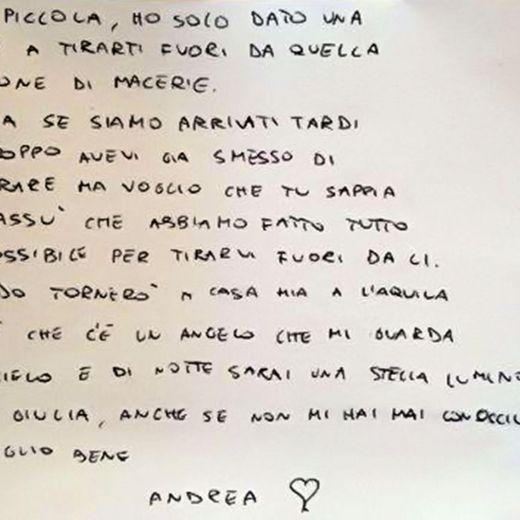 PICCOLA, HO SOLO DATO UNA
A TIRARTI FUORI DA QUELLA
ONE DI MACERIE.
A SE SIAMO ARRIVATI TARDI
OPPO AVEVI GIA SMESSO DI
RARE MA VOGLIO CHE TU SAPPIA
ASSU' CHE ABBIAMO FATTO TUTTO
OSSIBILE PER TIRARVI FUORI DA LI.
DO TORNERO' A CASA MIA A L'AQUILA
CHE C'È UN ANGELO CHE MI GUARDA
IELO E DI NOTTE SARAI UNA STELLA LUMINO
GIULIA, ANCHE SE NON MI HAI MAI CONOSCIU
GLIO BENE
ANDREA